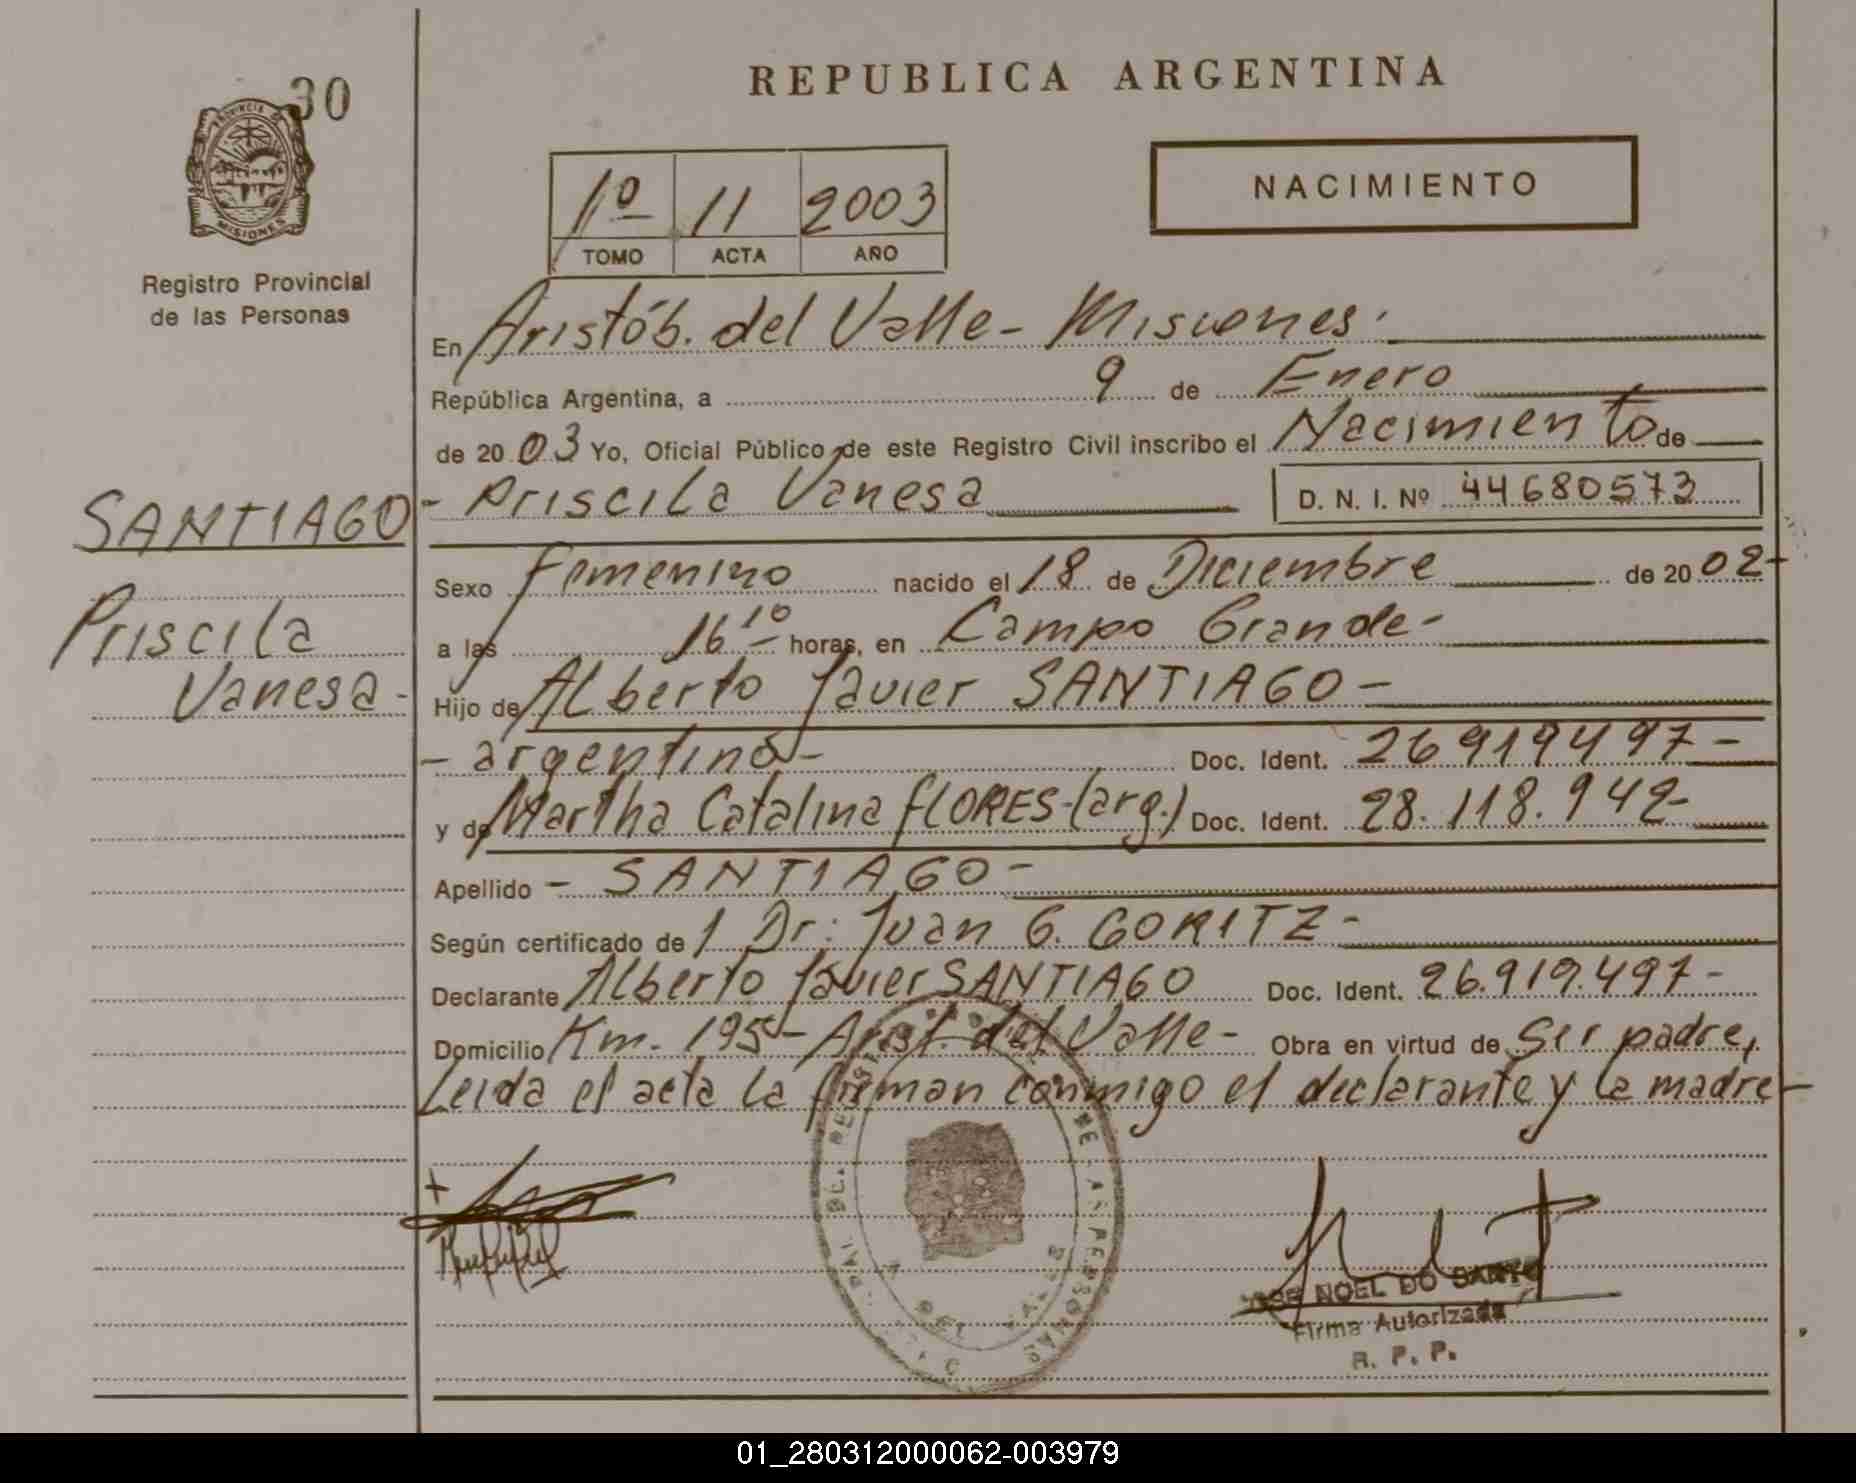 30
REPUBLICA ARGENTINA
PROVINCIA DE
MISIONES
Registro Provincial
de las Personas
1º 11 2003
TOMO ACTA AÑO
NACIMIENTO
En Aristób. del Valle - Misiones.
República Argentina, a 9 de Enero
de 20 03 Yo, Oficial Público de este Registro Civil inscribo el Nacimiento de
SANTIAGO - Priscila Vanesa D. N. I. Nº 44680573
Priscila
Vanesa -
Sexo Femenino nacido el 18 de Diciembre de 20 02 -
a las 16 10 horas, en Campo Grande -
Hijo de Alberto Javier SANTIAGO -
- argentino - Doc. Ident. 26919497 -
y de Martha Catalina FLORES - (arg.) Doc. Ident. 28.118.942 -
Apellido - SANTIAGO -
Según certificado de 1 Dr: Juan G. GORITZ -
Declarante Alberto Javier SANTIAGO Doc. Ident. 26.919.497 -
Domicilio Km. 195 - Arist. del Valle - Obra en virtud de Ser padre,
Leida el acta la firman conmigo el declarante y la madre -
JOSE NOEL DO SANTO
Firma Autorizada
R. P. P.
01_280312000062-003979